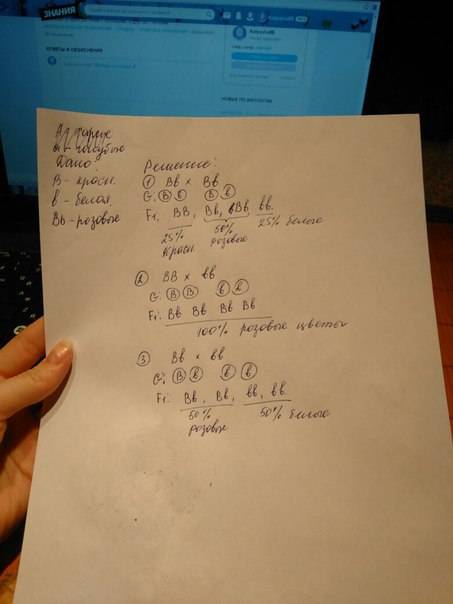 ЗНАНИЯ
ОТВЕТЫ И ОБЪЯСНЕНИЯ
А - карие
а - голубые
Дано:
В - красн.
в - белая.
Вв - розовые
Решение:
① Вв × Вв
G: Ⓑ ⓑ Ⓑ ⓑ
F1: ВВ, Вв, вВ вв.
25% красн
50% розовые
25% белые
② ВВ × вв
G: Ⓑ Ⓑ ⓑ ⓑ
F1: Вв Вв Вв Вв
100% розовые цветы
③ Вв × вв
G: Ⓑ ⓑ ⓑ ⓑ
F1: Вв, Вв, вв, вв.
50% розовые
50% белые